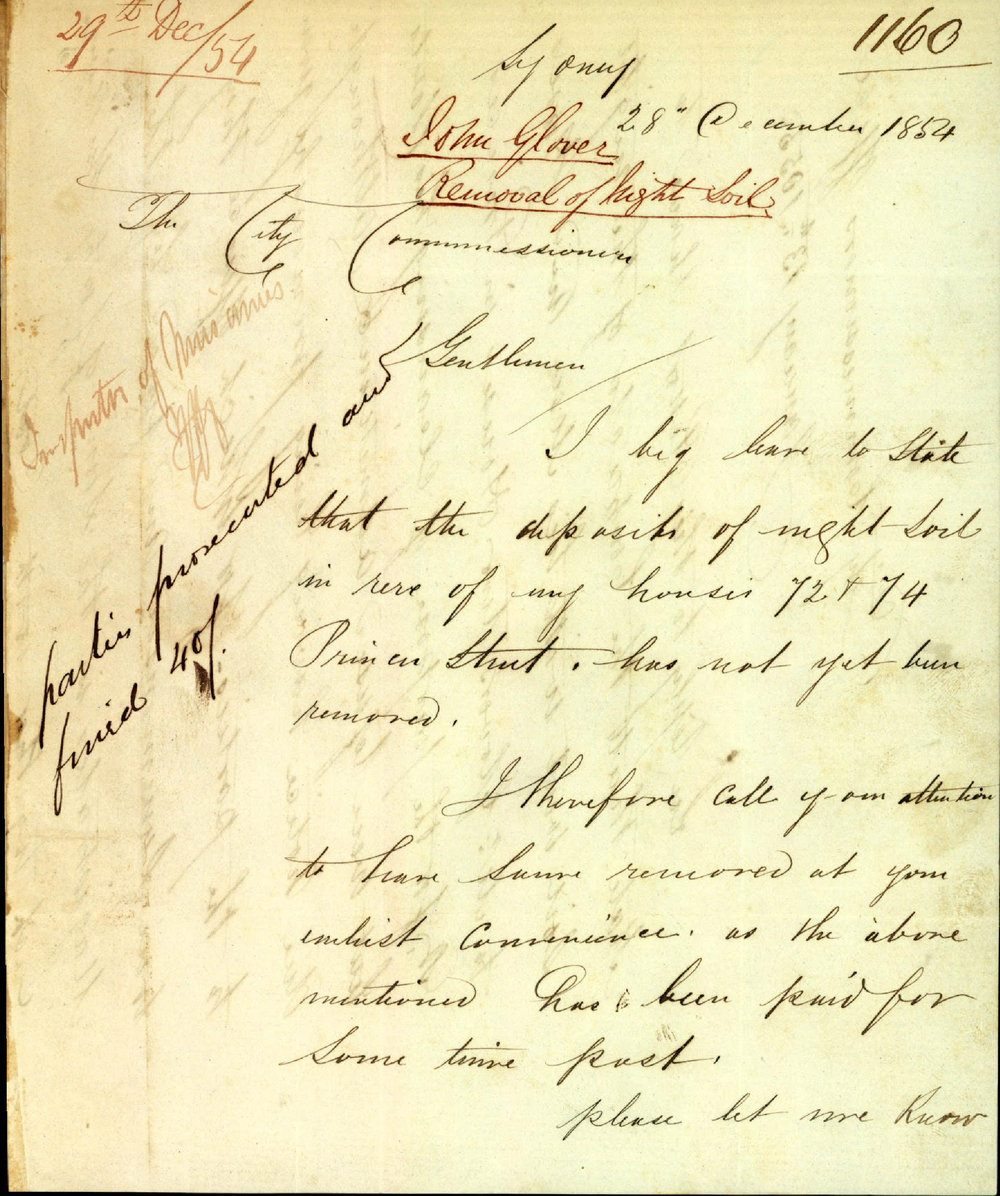 29th Dec/54
1160
Sydney
28" December 1854
John Glover
Removal of Night Soil
The City Commissioners
Gentlemen
I beg leave to State
that the deposits of night soil
in rere of my houses 72 & 74
Princes Street. has not yet been
removed.
I therefore call your attention
to have same removed at your
earliest convenience. as the above
mentioned has been paid for
some time past.
please let me Know
Inspector of Nuisances
parties prosecuted and
fined 40/.